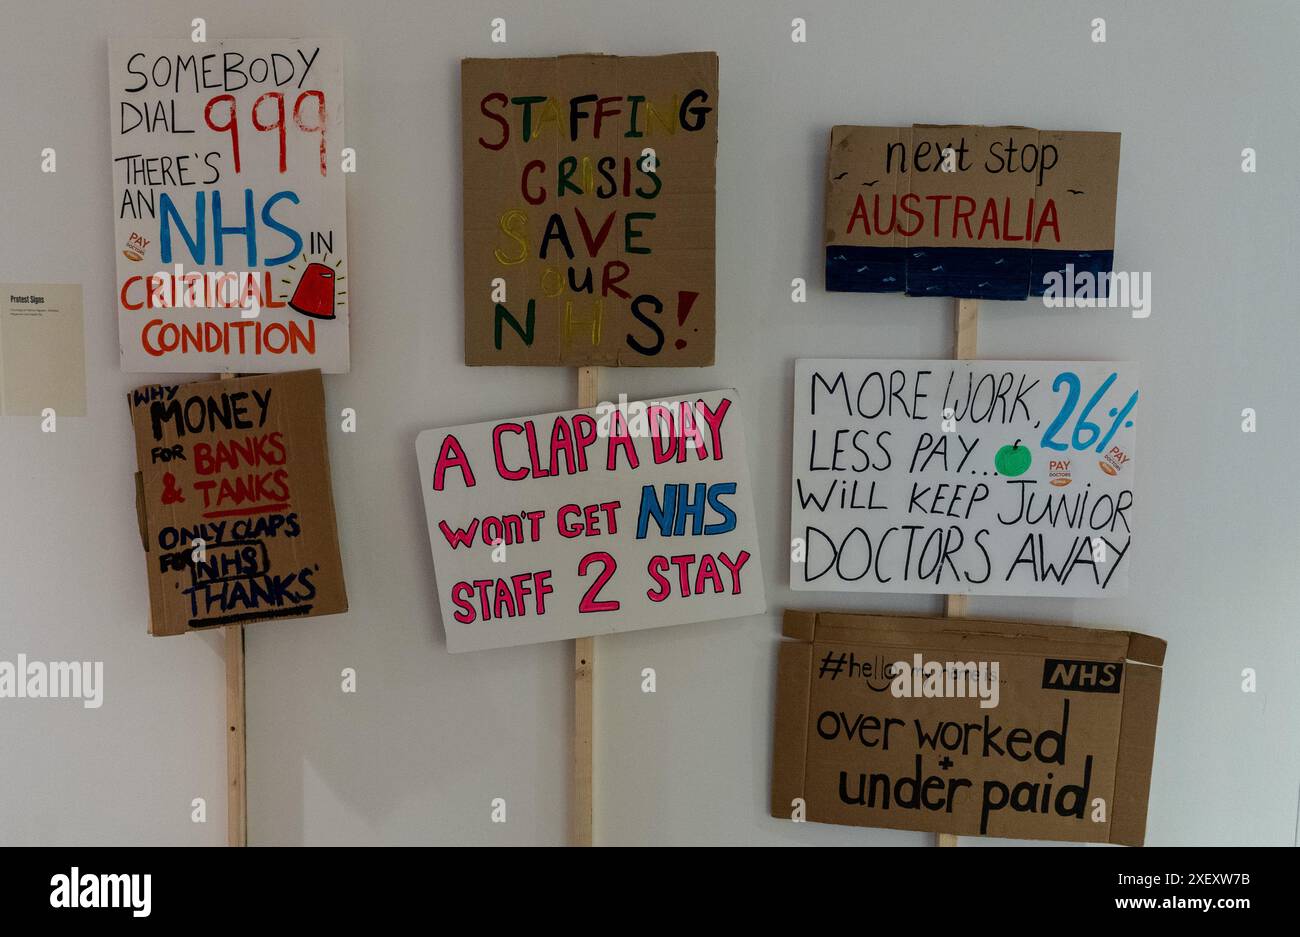 SOMEBODY
DIAL 999
THERE'S
AN NHS IN
CRITICAL
CONDITION
PAY
DOCTORS
WHY
MONEY
FOR BANKS
& TANKS
ONLY CLAPS
FOR NHS
'THANKS'
STAFFING
CRISIS
SAVE
OUR
NHS!
A CLAP A DAY
WON'T GET NHS
STAFF 2 STAY
next stop
AUSTRALIA
MORE WORK, 26%
LESS PAY...
WILL KEEP JUNIOR
DOCTORS AWAY
PAY
DOCTORS
PAY
DOCTORS
#hello my name is...
NHS
over worked
+
under paid
Protest Signs
alamy
Image ID: 2XEXW7B
www.alamy.com